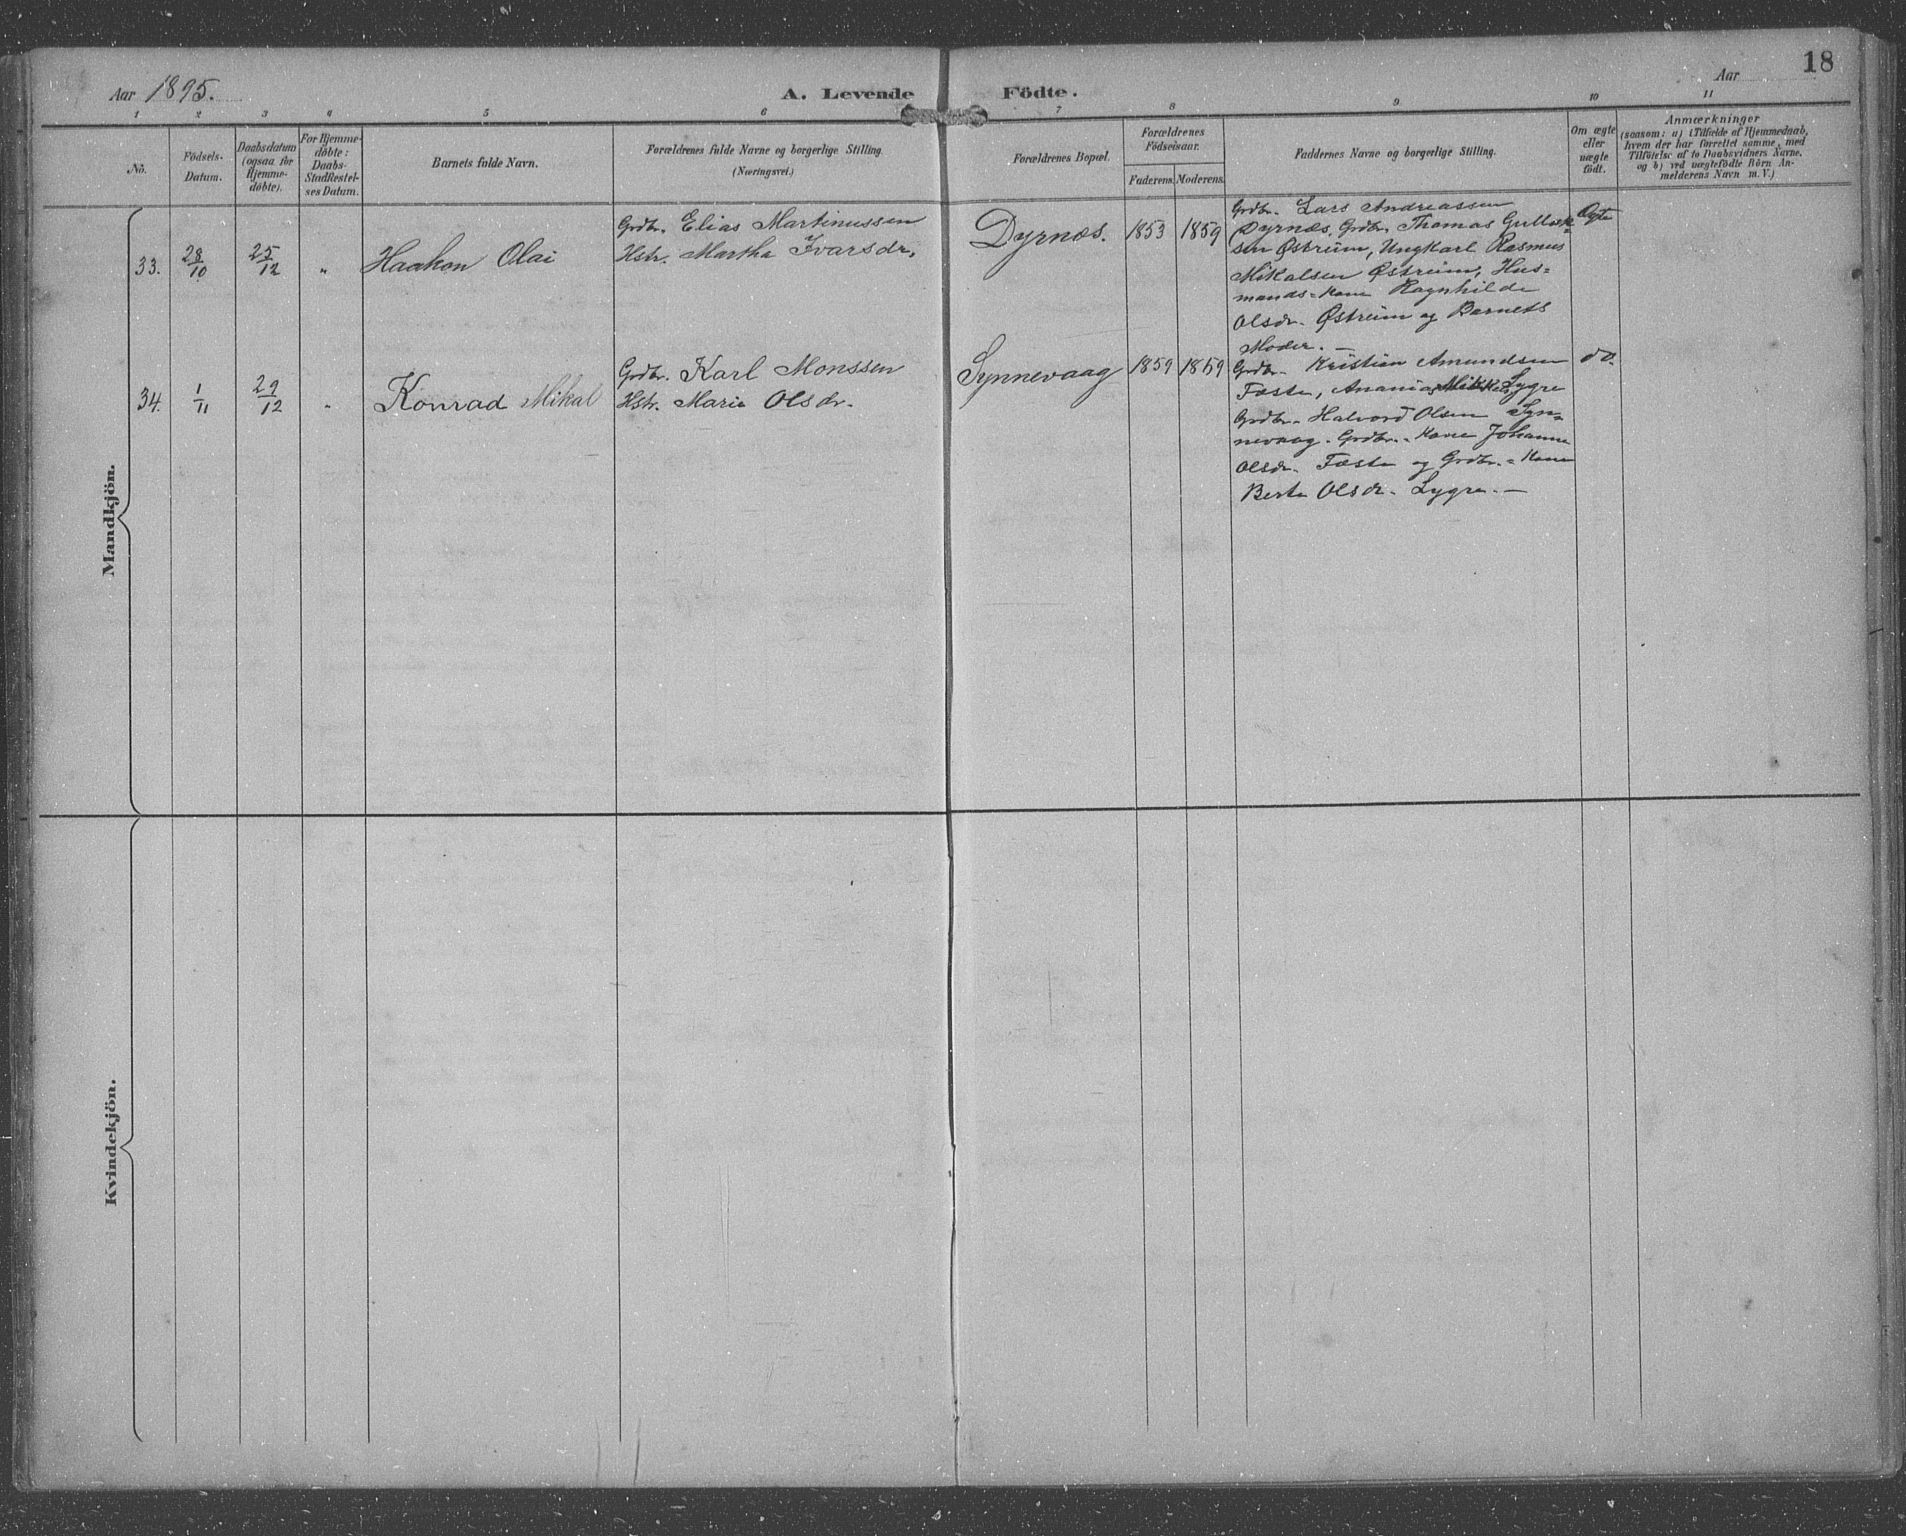 18
Aar 1895.
A. Levende Födte.
Aar
1 2 3 4 5 6 7 8 9 10 11
No.
Födsels-
Datum.
Daabsdatum
(ogsaa for
Hjemme-
döbte).
For Hjemme-
döbte:
Daabs-
Stadfæstel-
ses Datum.
Barnets fulde Navn.
Forældrenes fulde Navne og borgerlige Stilling
(Næringsvei.)
Forældrenes Bopæl.
Forældrenes
Födselsaar.
Faderens. Moderens.
Faddernes Navne og borgerlige Stilling.
Om ægte
eller
uægte
født.
Anmærkninger
(saasom: a) i Tilfælde af Hjemmedaab,
hvem der har forrettet samme, med
Tilföielse af to Daabsvidners Navne,
og b) ved uægtefödte Börn An-
melderens Navn m. V.)
Mandkjön.
33. 28/10 25/12 " Haakon Olai
Grdbr. Elias Martinussen
Hstr. Martha Ivarsdr.
Dyrnæs. 1853 1859
Grdbr. Lars Andreassen
Dyrnæs, Grdbr. Thomas Gullak-
sen Østreim, Ungkarl Rasmus
Mikalsen Østreim, Hus-
mands-Kone Ragnhilde
Olsdr. Østreim og Barnets
Moder. —
Ægte
34. 1/11 29/12 " Konrad Mikal
Grdbr. Karl Monssen
Hstr. Marie Olsdr.
Synnevaag 1859 1859
Grdbr. Kristian Amundsen
Fæste, Ananias Lygre
Grdbr. Halvord Olsen Syn-
nevaag. Grdbr.-Kone Johanne
Olsdr. Fæste og Grdbr.-Kone
Berte Olsdr. Lygre. —
do.
Kvindekjön.